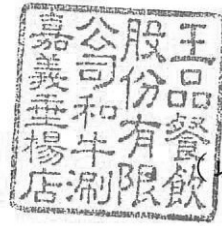 王品餐飲
股份有限
公司和牛涮
嘉義垂楊店